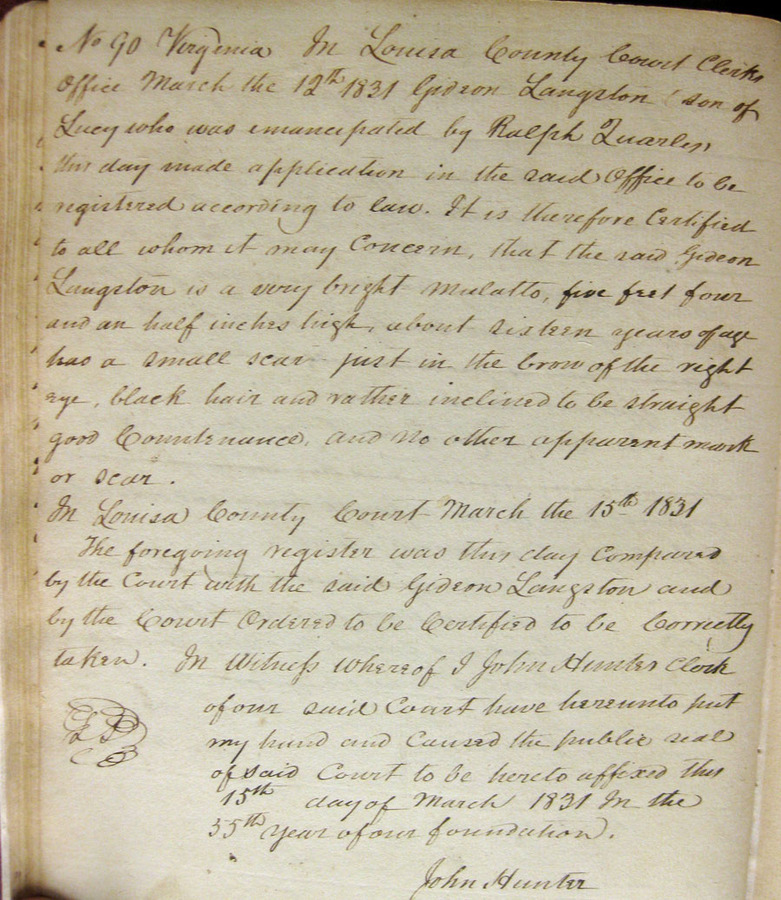 No 90 Virginia In Louisa County Court Clerks
Office March the 12th 1831 Gideon Langston (son of
Lucy who was emancipated by Ralph Quarles
this day made application in the said Office to be
registered according to law. It is therefore Certified
to all whom it may Concern, that the said Gideon
Langston is a very bright Mulatto, five feet four
and an half inches high, about sixteen years of age
has a small scar just in the brow of the right
eye, black hair and rather inclined to be straight
good Countenance, and no other apparent mark
or scar.
In Louisa County Court March the 15th 1831
The foregoing register was this day Compared
by the Court with the said Gideon Langston and
by the Court Ordered to be Certified to be Correctly
taken. In Witness whereof I John Hunter Clerk
of our said Court have hereunto put
my hand and Caused the public seal
of said Court to be hereto affixed this
15th day of March 1831 In the
55th year of our foundation.
John Hunter